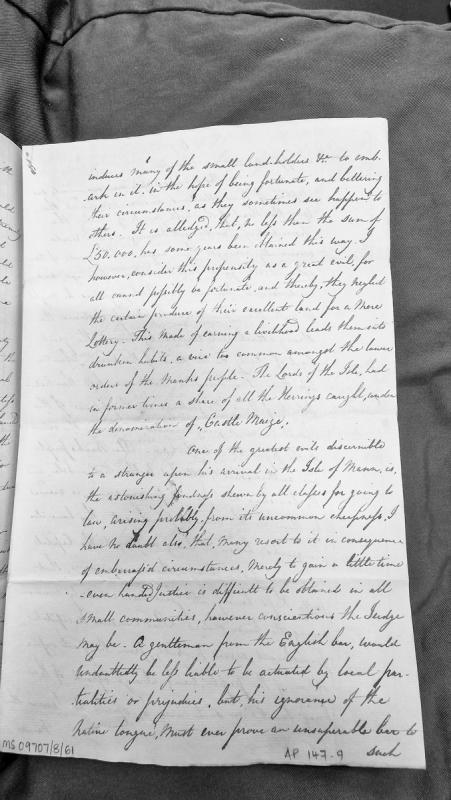 induces many of the small land-holders &c. to emb-
ark in it in the hope of being fortunate, and bettering
their circumstances, as they sometimes see happen to
others. It is alledged, that, no less than the sum of
£50.000, has some years been obtained this way. I
however, consider this propensity as a great evil, for
all cannot possibly be fortunate, and thereby, they neglect
the certain produce of their excellent land for a mere
Lottery. This mode of earning a livelihood leads them into
drunken habits, a vice too common amongst the lower
orders of the Manks people. The Lords of the Isle, had
in former times a share of all the Herrings caught, under
the denomination of, Castle Maize.
One of the greatest evils discernible
to a stranger upon his arrival in the Isle of Mann, is,
the astonishing fondness shewn by all classes for going to
law, arising probably, from its uncommon cheapness. I
have no doubt also, that, many resort to it in consequence
of embarrass'd circumstances, merely to gain a little time
-even handed Justice is difficult to be obtained in all
small communities, however conscientious the Judge
may be. A gentleman from the English bar, would
undoubtedly be less liable to be actuated by local par-
tialities or prejudices, but, his ignorance of the
native tongue, must ever prove an unsuperable bar to
such
MS 09707/8/61
AP 147-9